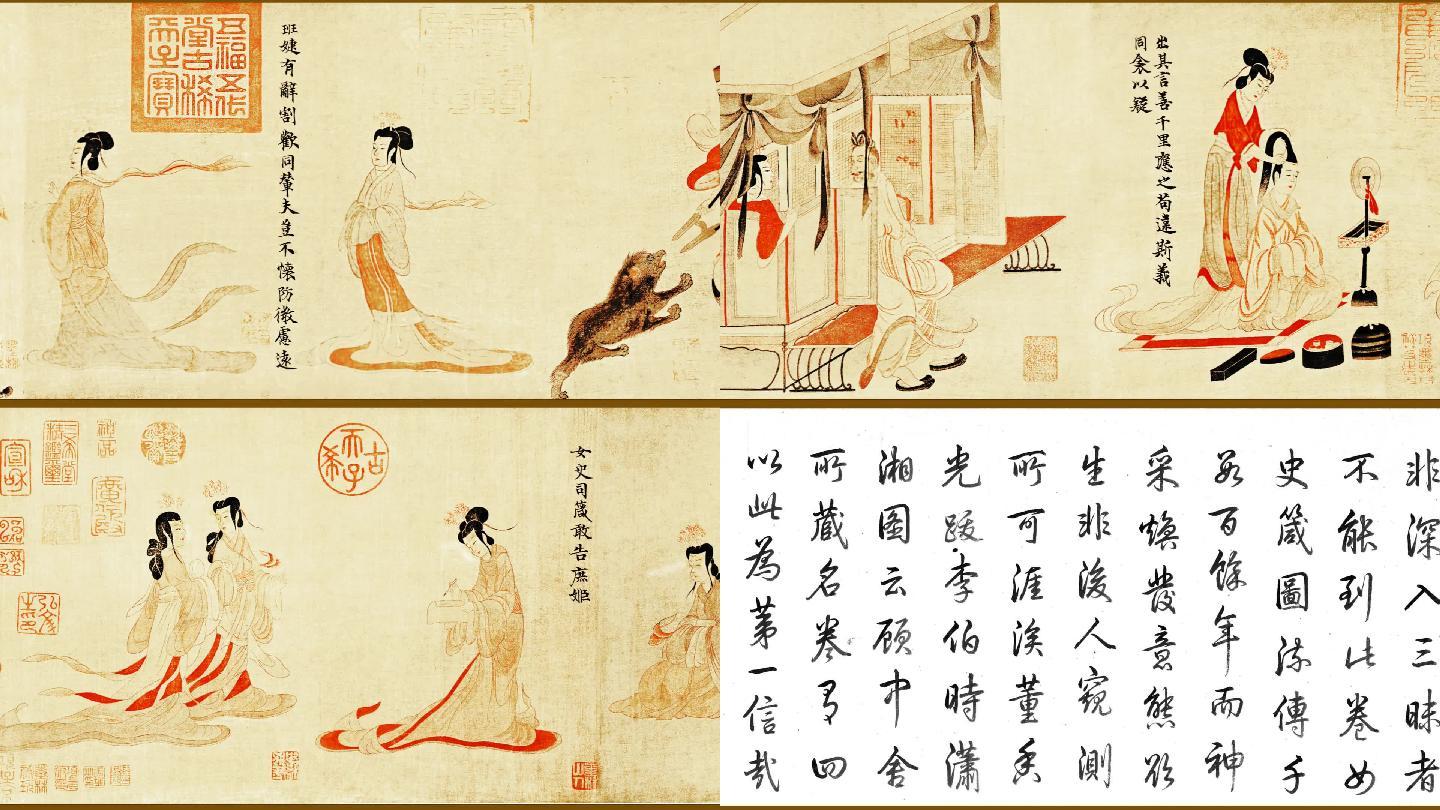 五福五代
堂古稀
天子寶
班婕有辭割歡同輦夫豈不懷防微慮遠
出其言善千里應之苟違斯義
同衾以疑
女史司箴敢告庶姬
古希天子
三希堂
精鑑璽
宣和
非深入三昧者
不能到此卷女
史箴圖流傳千
百餘年而神
采煥發意態欲
生非後人窺測
所可涯涘董香
光跋李伯時瀟
湘圖云顧中舍
所藏名卷有四
以此為第一信哉